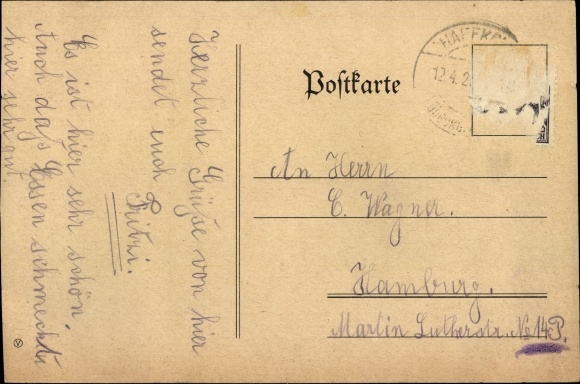 Herzliche Grüße von hier
sendet euch
Fritzi.
Es ist hier sehr schön.
Auch das Essen schmeckt
hier sehr gut.
Postkarte
12.4.2
An Herrn
C. Wagner.
Hamburg.
Martin Lutherstr. No 14 P.